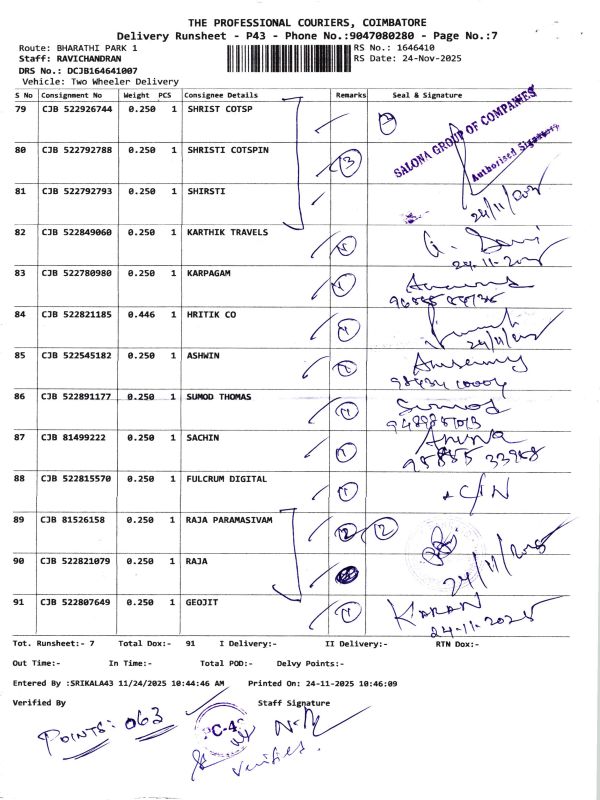 THE PROFESSIONAL COURIERS, COIMBATORE
Delivery Runsheet - P43 - Phone No.:9047080280 - Page No.:7
Route: BHARATHI PARK 1 RS No.: 1646410
Staff: RAVICHANDRAN RS Date: 24-Nov-2025
DRS No.: DCJB164641007
Vehicle: Two Wheeler Delivery
S No Consignment No Weight PCS Consignee Details Remarks Seal & Signature
79 CJB 522926744 0.250 1 SHRIST COTSP
SALONA GROUP OF COMPANIES
80 CJB 522792788 0.250 1 SHRISTI COTSPIN 3
Authorised Signatory
81 CJB 522792793 0.250 1 SHIRSTI
24/11/2025
82 CJB 522849060 0.250 1 KARTHIK TRAVELS
24-11-2025
83 CJB 522780980 0.250 1 KARPAGAM
84 CJB 522821185 0.446 1 HRITIK CO
24/11/2025
85 CJB 522545182 0.250 1 ASHWIN
86 CJB 522891177 0.250 1 SUMOD THOMAS
Sumod
87 CJB 81499222 0.250 1 SACHIN
88 CJB 522815570 0.250 1 FULCRUM DIGITAL
89 CJB 81526158 0.250 1 RAJA PARAMASIVAM 2 2
90 CJB 522821079 0.250 1 RAJA
24/11/2025
91 CJB 522807649 0.250 1 GEOJIT
KARAN
24-11-2025
Tot. Runsheet:- 7 Total Dox:- 91 I Delivery:- II Delivery:- RTN Dox:-
Out Time:- In Time:- Total POD:- Delvy Points:-
Entered By :SRIKALA43 11/24/2025 10:44:46 AM Printed On: 24-11-2025 10:46:09
Verified By Staff Signature
POINTS: 063
PC-43
Verifies.